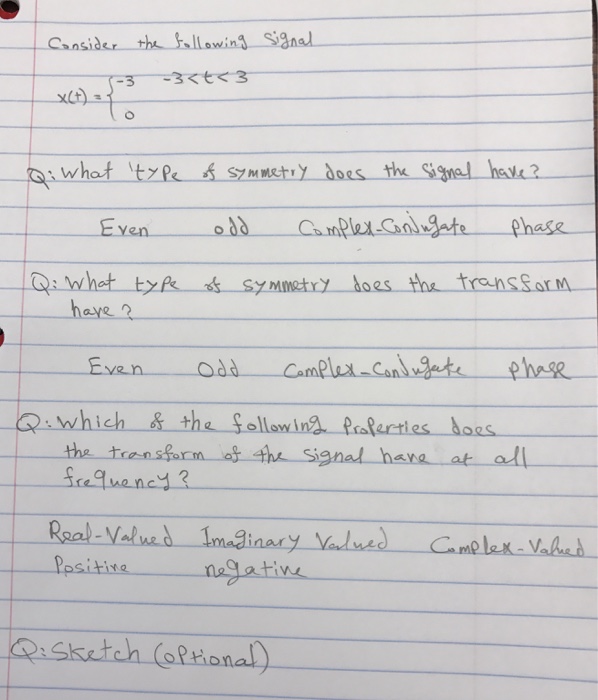 Consider the following signal
x(t) = { -3 -3<t<3
0
Q: What type of symmetry does the signal have?
Even odd Complex-Conjugate phase
Q: What type of symmetry does the transform
have?
Even Odd Complex-Conjugate phase
Q: Which of the following Properties does
the transform of the signal have at all
frequency?
Real-Valued Imaginary Valued Complex-Valued
Positive negative
Q: Sketch (optional)